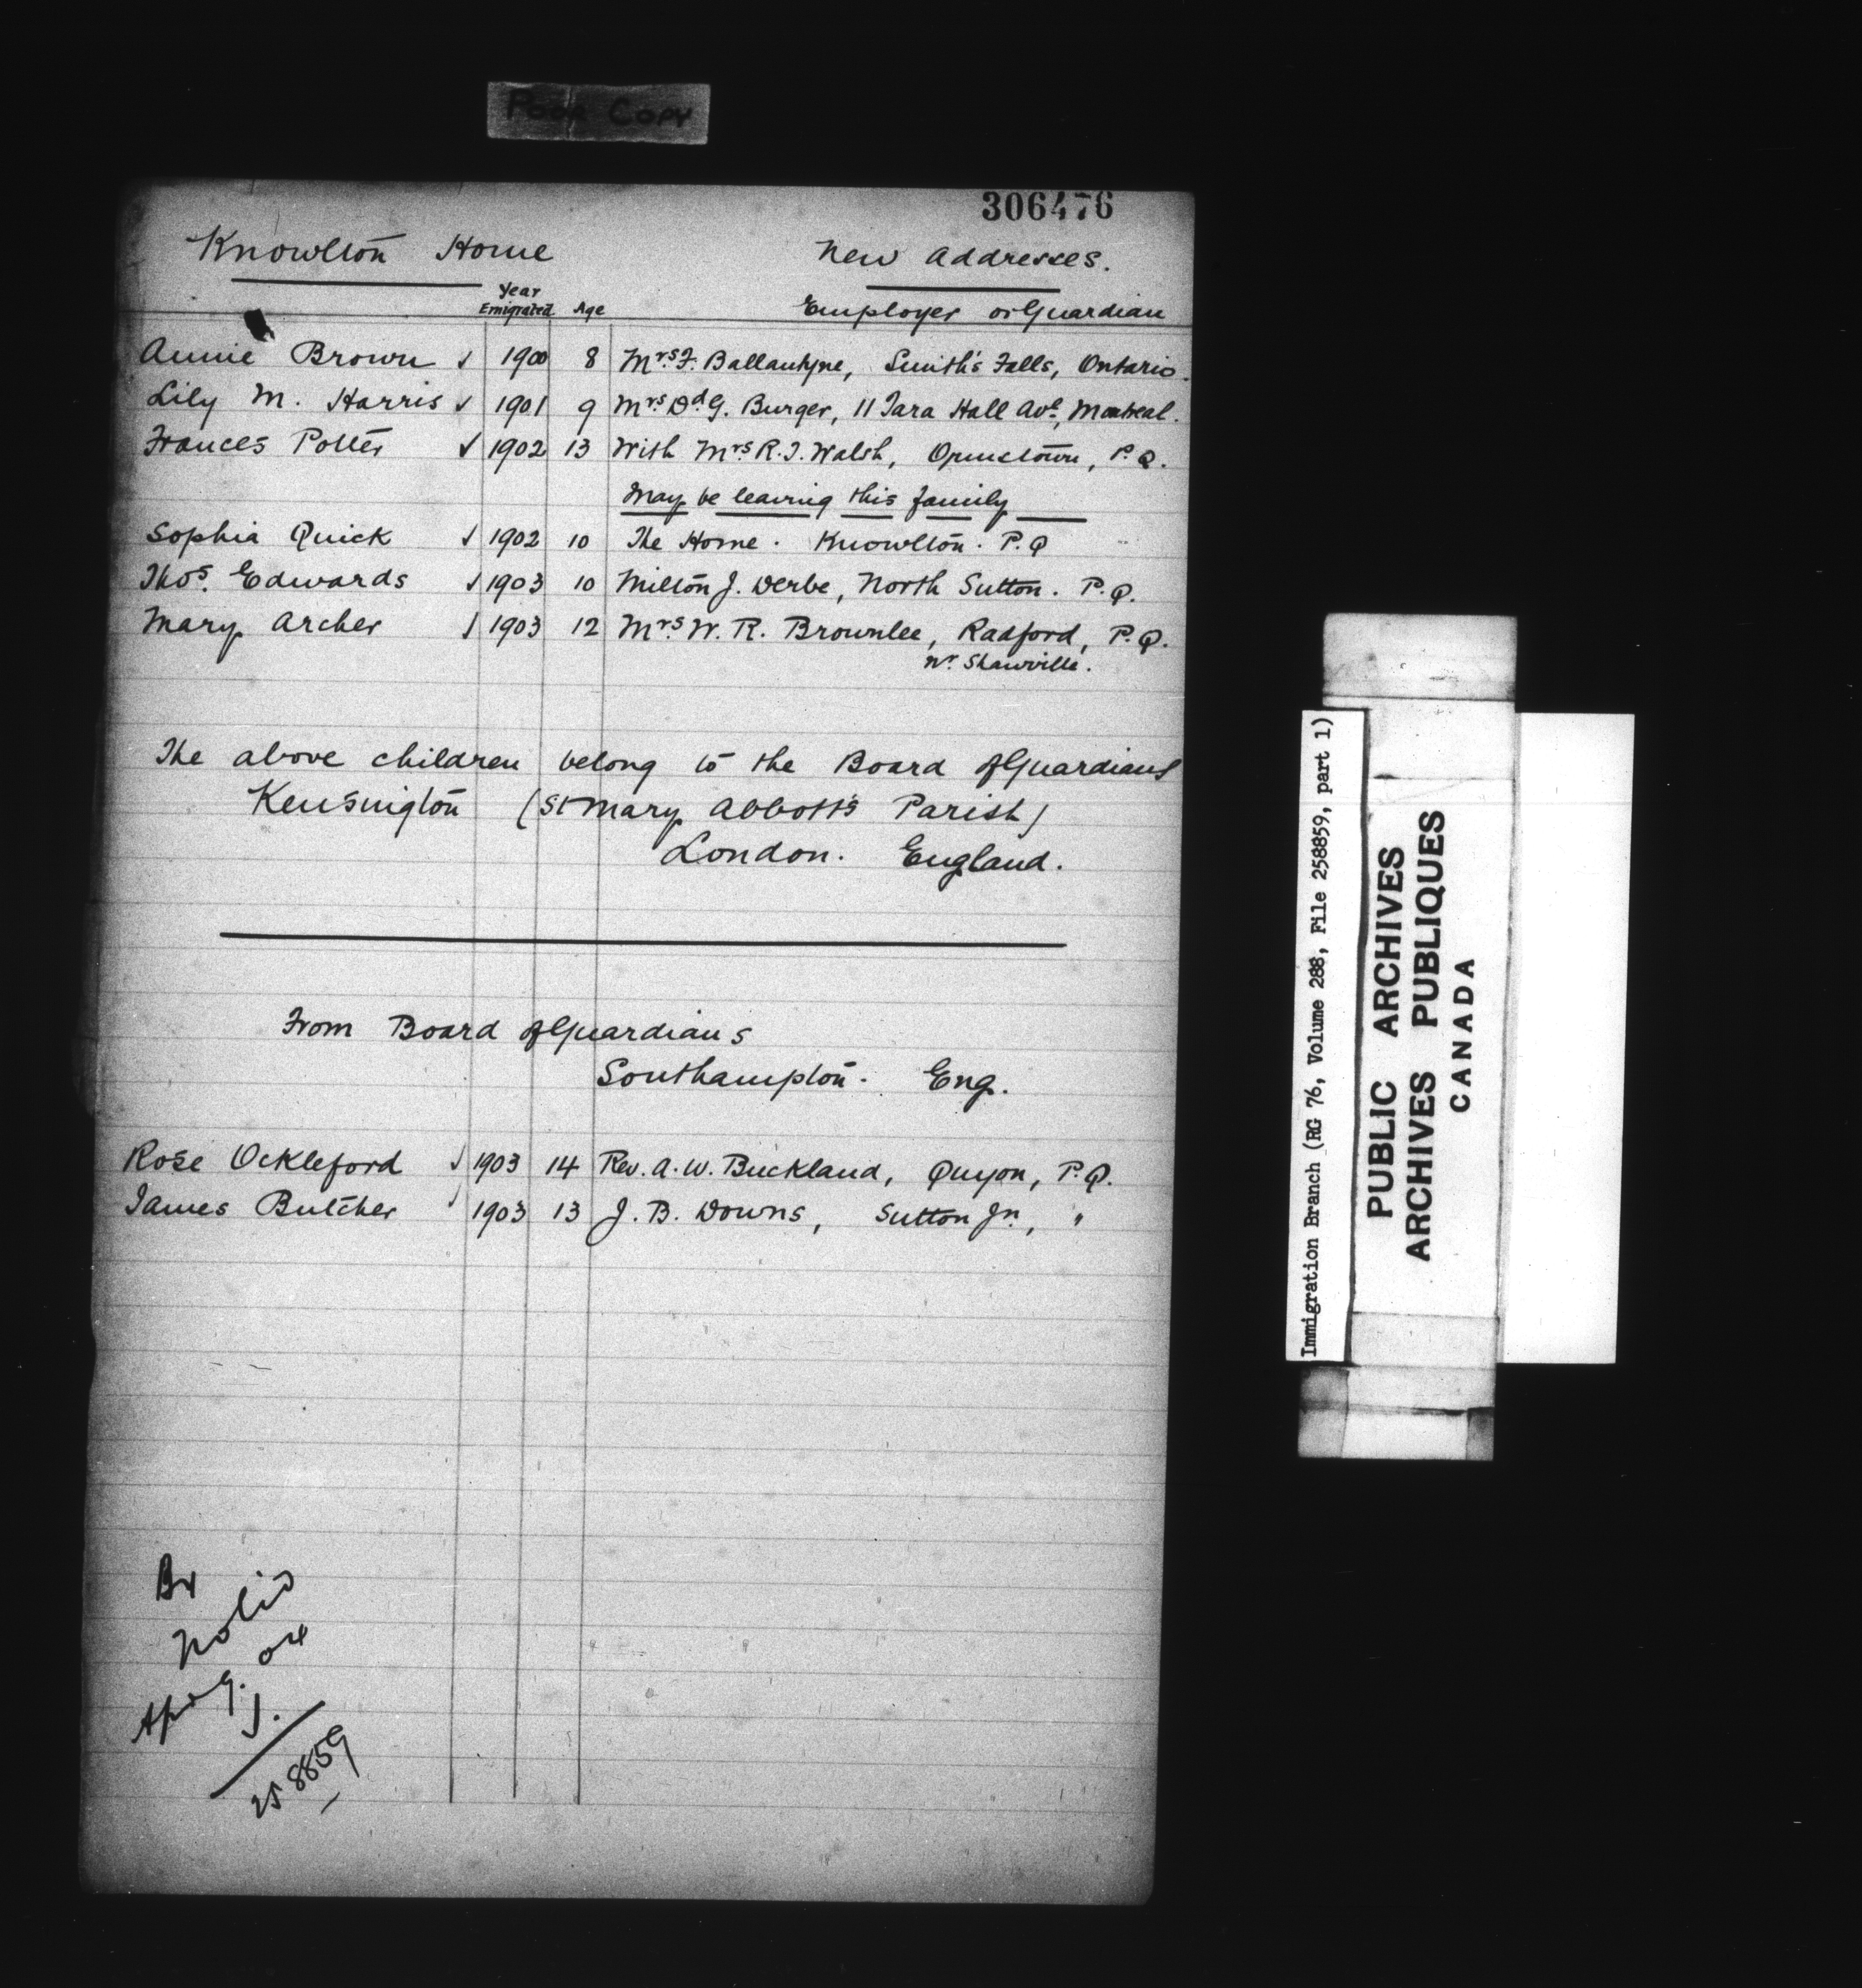 POOR COPY
306476
Knowlton Home New Addresses.
Year Emigrated Age Employer or Guardian
Annie Brown ✓ 1900 8 Mrs. F. Ballantyne, Smith's Falls, Ontario.
Lily M. Harris ✓ 1901 9 Mrs. Dd. G. Burger, 11 Tara Hall Ave, Montreal.
Frances Potter ✓ 1902 13 With Mrs. R. J. Walsh, Ormstown, P.Q.
May be leaving this family
Sophia Quick ✓ 1902 10 The Home. Knowlton. P.Q
Thos. Edwards ✓ 1903 10 Milton J. Derbe, North Sutton. P.Q.
Mary Archer ✓ 1903 12 Mrs. W. R. Brownlee, Radford, P.Q.
nr. Shawville.
The above children belong to the Board of Guardians
Kensington (St Mary Abbott's Parish)
London. England.
From Board of Guardians
Southampton. Eng.
Rose Ockleford ✓ 1903 14 Rev. A. W. Buckland, Quyon, P.Q.
James Butcher ✓ 1903 13 J. B. Downs, Sutton Jn, "
258859
Immigration Branch (RG 76, Volume 288, File 258859, part 1)
PUBLIC ARCHIVES
ARCHIVES PUBLIQUES
CANADA